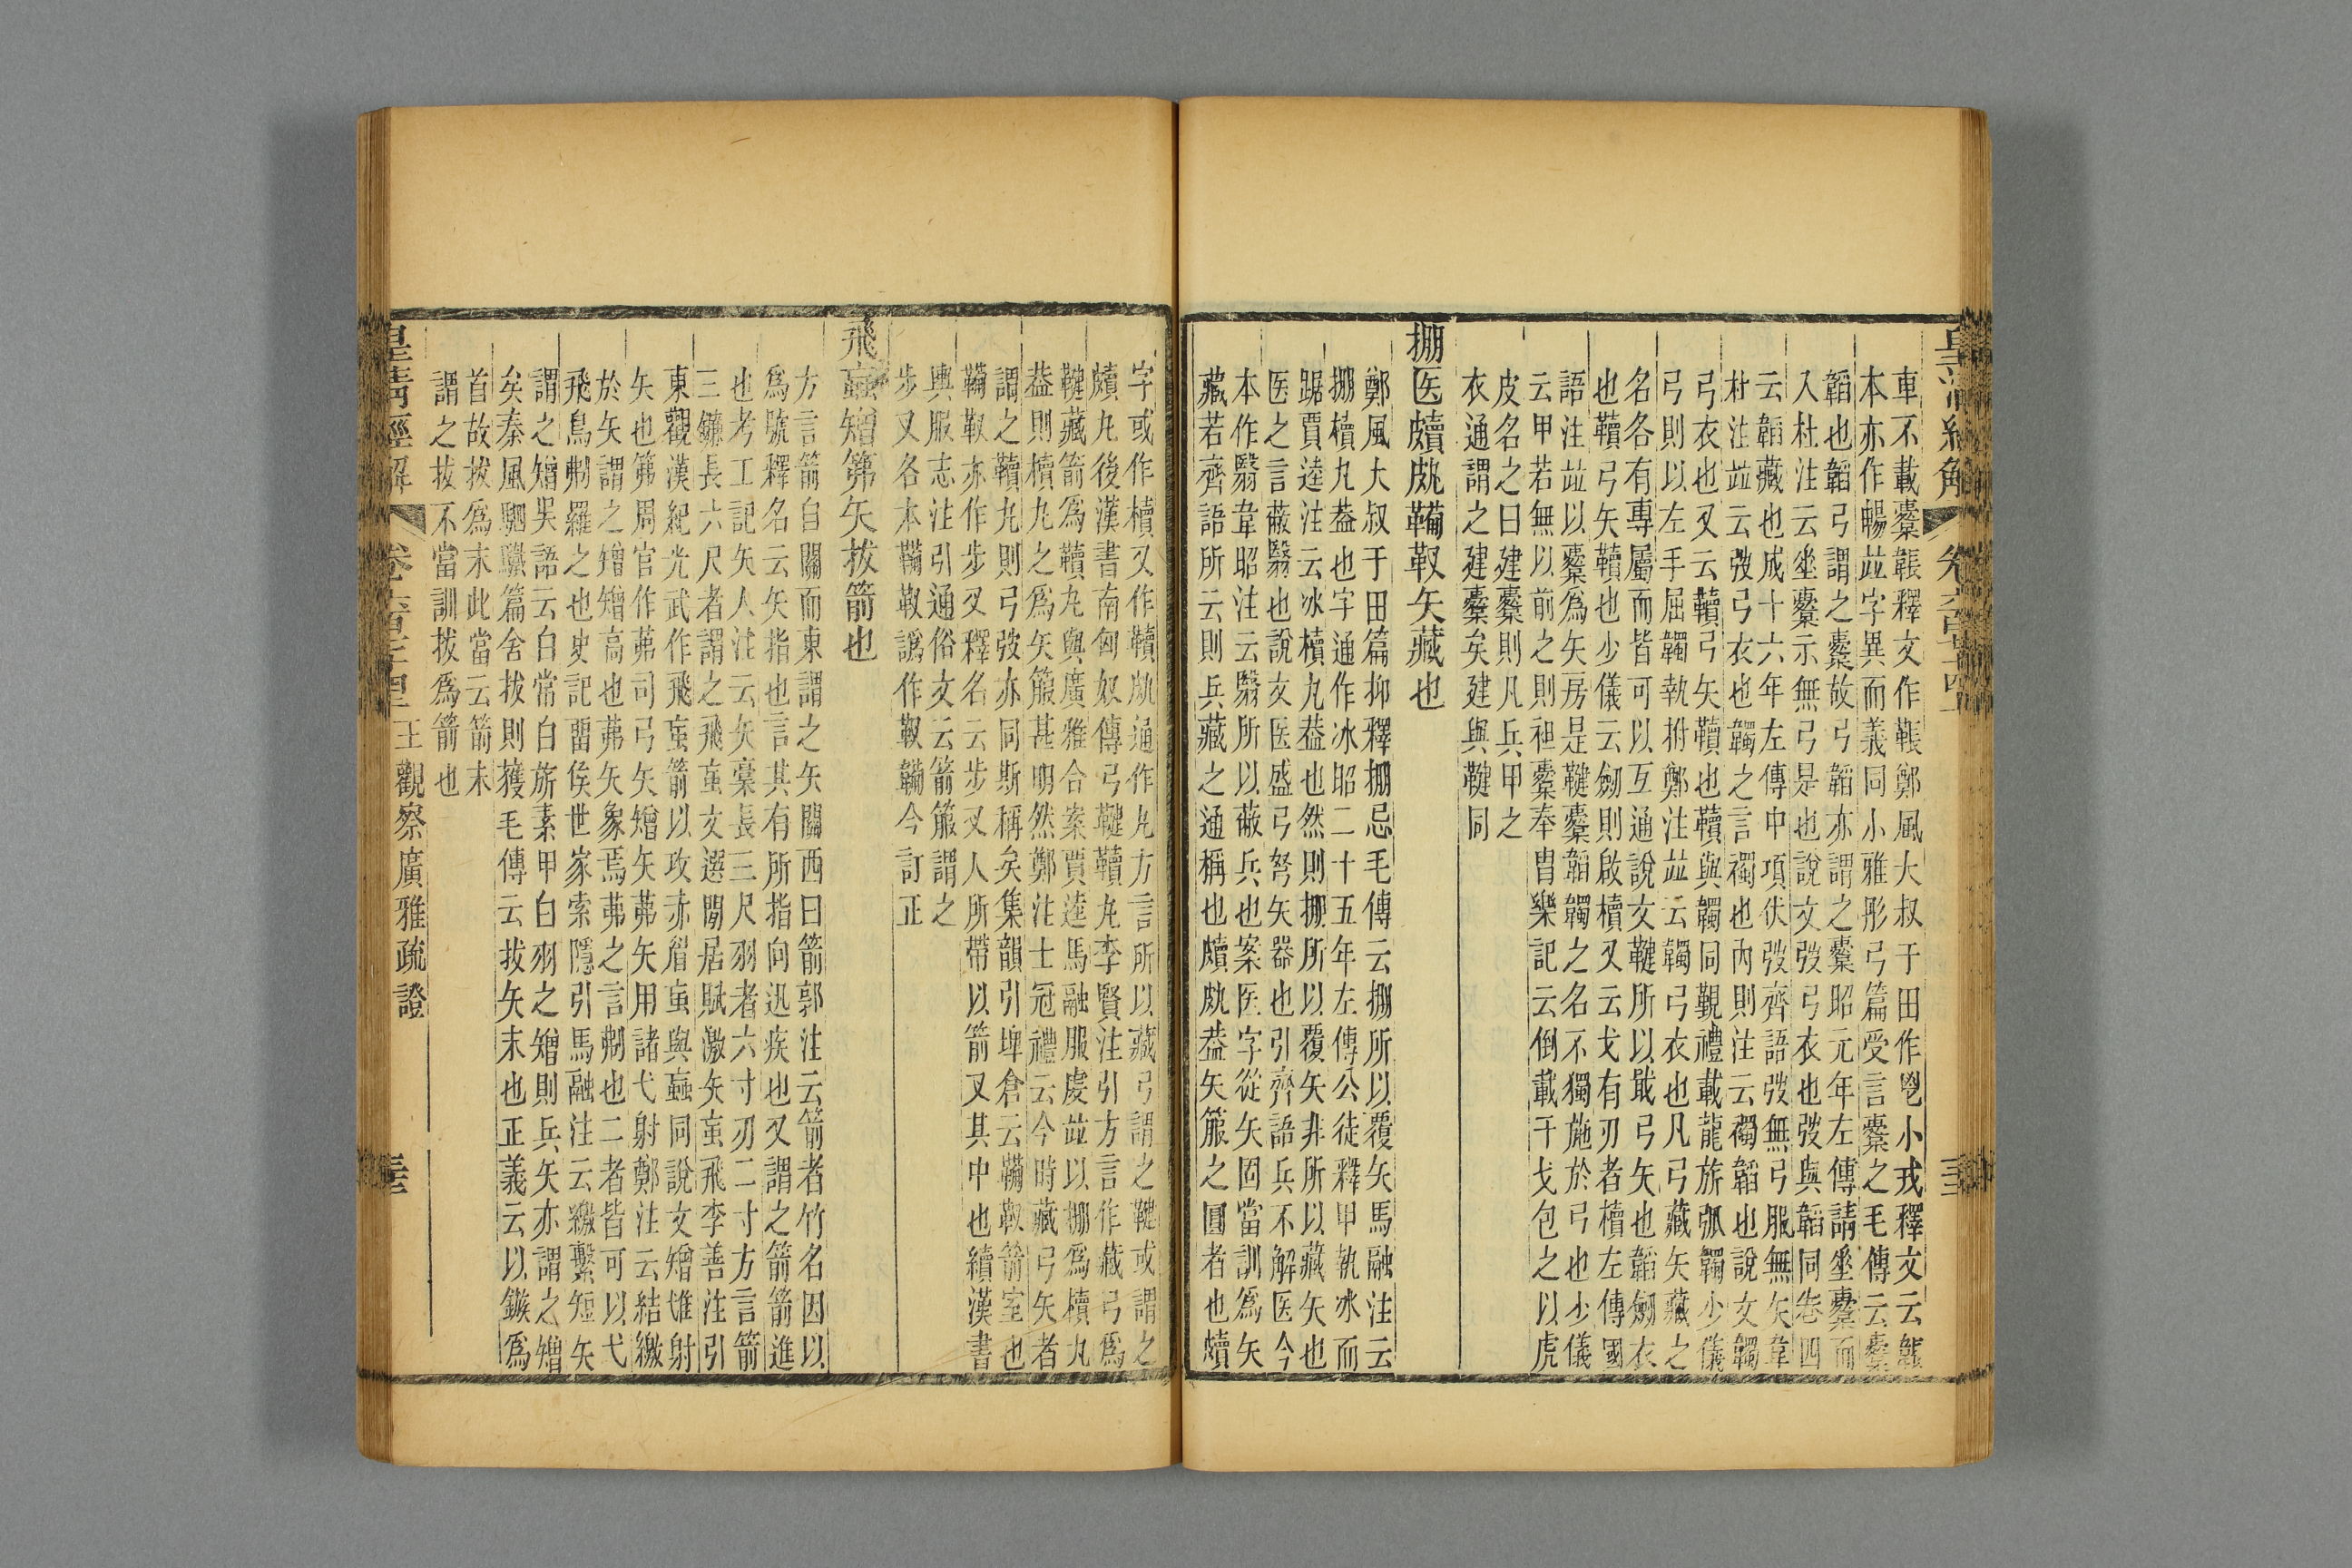 車不載櫜韔釋文作韔鄭風大叔于田作鬯小戎釋文云韔
本亦作暢竝字異而義同小雅彤弓篇受言櫜之毛傳云櫜
韜也韜弓謂之櫜故弓韜亦謂之櫜昭元年左傳請垂櫜而
入杜注云垂櫜示無弓是也說文弢弓衣也弢與韜同卷四
云韜藏也成十六年左傳中項伏弢齊語弢無弓服無矢韋
杜注竝云弢弓衣也韣之言襡也內則注云襡韜也說文韣
弓衣也又云韇弓矢韇也韇與韣同覲禮載龍旂弧韣少儀
弓則以左手屈韣執拊鄭注竝云韣弓衣也凡弓藏矢藏之
名各有專屬而皆可以互通說文鞬所以戢弓矢也韜劒衣
也韇弓矢韇也少儀云劒則啟櫝又云戈有刃者櫝左傳國
語注竝以櫜為矢房是鞬櫜韜韣之名不獨施於弓也少儀
云甲若無以前之則袒櫜奉冑樂記云倒載干戈包之以虎
皮名之曰建櫜則凡兵甲之
衣通謂之建櫜矣建與鞬同
掤医皾㼯鞴靫矢藏也
鄭風大叔于田篇抑釋掤忌毛傳云掤所以覆矢馬融注云
掤櫝丸葢也字通作冰昭二十五年左傳公徒釋甲執冰而
踞賈逵注云冰櫝丸葢也然則掤所以覆矢非所以藏矢也
医之言蔽翳也說文医盛弓弩矢器也引齊語兵不解医今
本作翳韋昭注云翳所以蔽兵也案医字從矢固當訓為矢
藏若齊語所云則兵藏之通稱也皾㼯葢矢箙之圓者也皾
字或作櫝又作韇㼯通作丸方言所以藏弓謂之鞬或謂之
皾丸後漢書南匈奴傳弓鞬韇丸李賢注引方言作藏弓為
鞬藏箭為韇丸與廣雅合案賈逵馬融服虔竝以掤為櫝丸
葢則櫝丸之為矢箙甚明然鄭注士冠禮云今時藏弓矢者
謂之韇丸則弓弢亦同斯稱矣集韻引埤倉云鞴靫箭室也
鞴靫亦作步叉釋名云步叉人所帶以箭叉其中也續漢書
輿服志注引通俗文云箭箙謂之
步叉各本鞴靫譌作靫鞴今訂正
飛䖟矰第矢拔箭也
方言箭自關而東謂之矢關西曰箭郭注云箭者竹名因以
為號釋名云矢指也言其有所指向迅疾也又謂之箭箭進
也考工記矢人注云矢稾長三尺羽者六寸刃二寸方言箭
三鐮長六尺者謂之飛䖟文選閒居賦激矢䖟飛李善注引
東觀漢紀光武作飛䖟箭以攻赤眉䖟與蝱同說文矰隿射
矢也第周官作茀司弓矢矰矢茀矢用諸弋射鄭注云結繳
於矢謂之矰矰高也茀矢象焉茀之言刜也二者皆可以弋
飛鳥刜羅之也史記留侯世家索隱引馬融注云繳繫短矢
謂之矰吳語云白常白旂素甲白羽之矰則兵矢亦謂之矰
矣秦風駟驖篇舍拔則獲毛傳云拔矢末也正義云以鏃為
首故拔為末此當云箭末
謂之拔不當訓拔為箭也
皇清經解
王觀察廣雅疏證